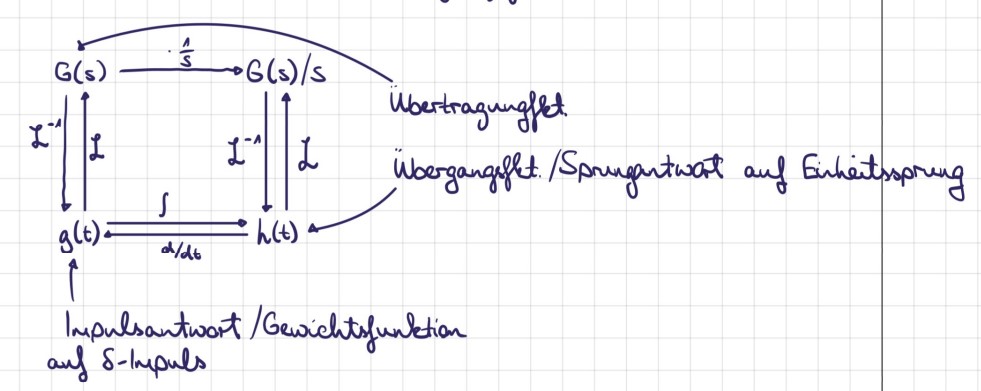 · 1/s
G(s) G(s)/s
Übertragungsfkt.
ℒ⁻¹ ℒ ℒ⁻¹ ℒ
Übergangsfkt./Sprungantwort auf Einheitssprung
∫
g(t) h(t)
d/dt
Impulsantwort/Gewichtsfunktion
auf δ-Impuls